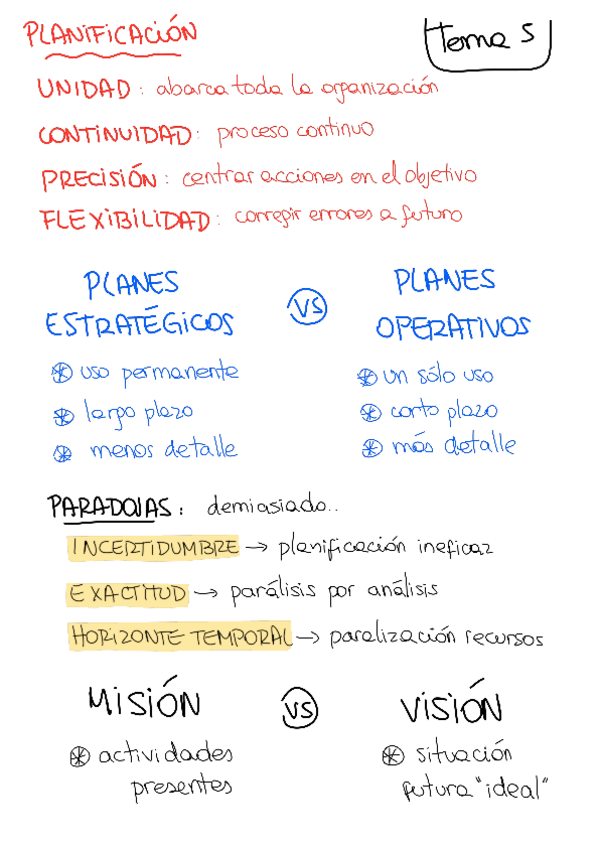 PLANiFiCACiÓN
Tema 5
UNiDAD : abarca toda la organización
CONTiNUiDAD : proceso continuo
PRECiSiÓN : centrar acciones en el objetivo
FLEXiBiLiDAD : corregir errores a futuro
PLANES ESTRATÉGiCOS
VS
PLANES OPERATiVOS
uso permanente
largo plazo
menos detalle
un sólo uso
corto plazo
más detalle
PARADOJAS : demiasiado..
INCERTIDUMBRE → planificación ineficaz
EXACTITUD → parálisis por análisis
HORIZONTE TEMPORAL → paralización recursos
MiSiÓN
VS
ViSiÓN
actividades
presentes
situación
futura "ideal"